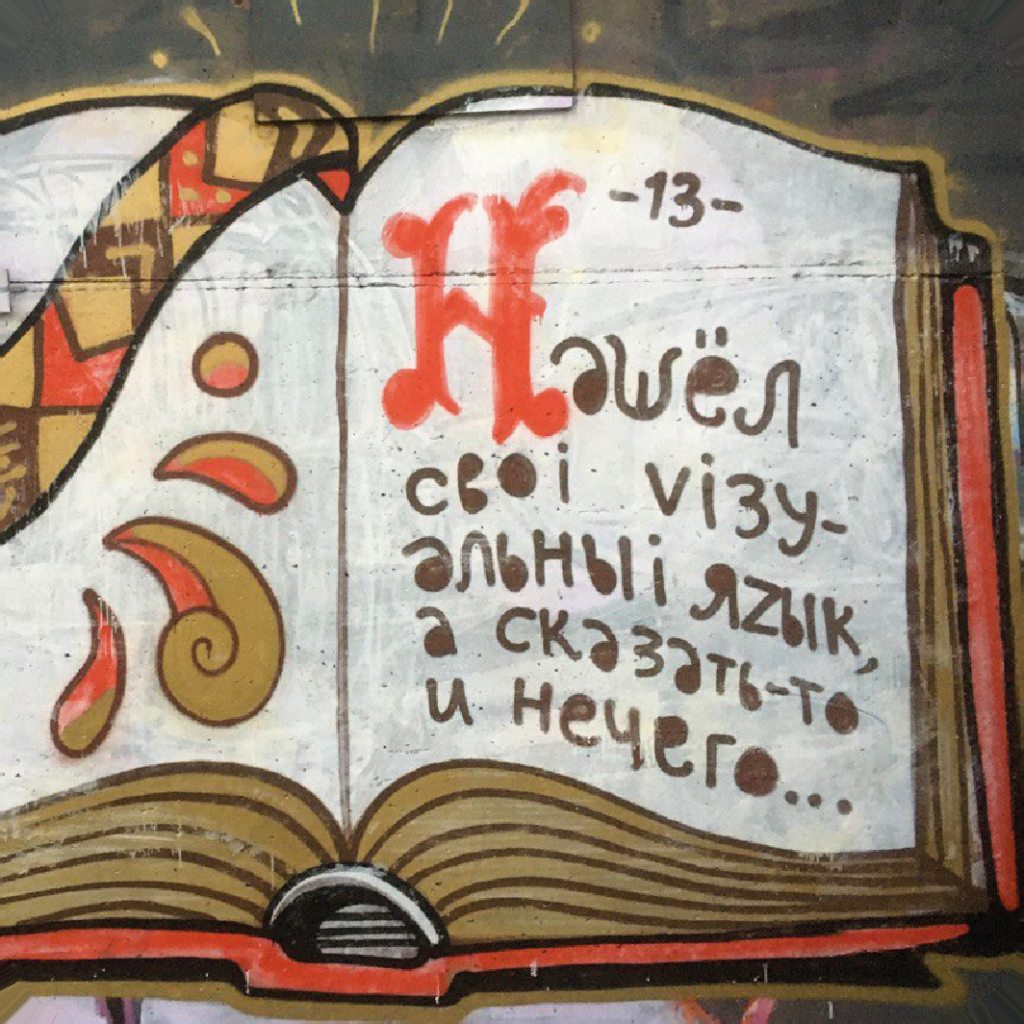 -13-
Нашёл
своі vізу-
альныі яzык,
а сказать-то
и нечего...